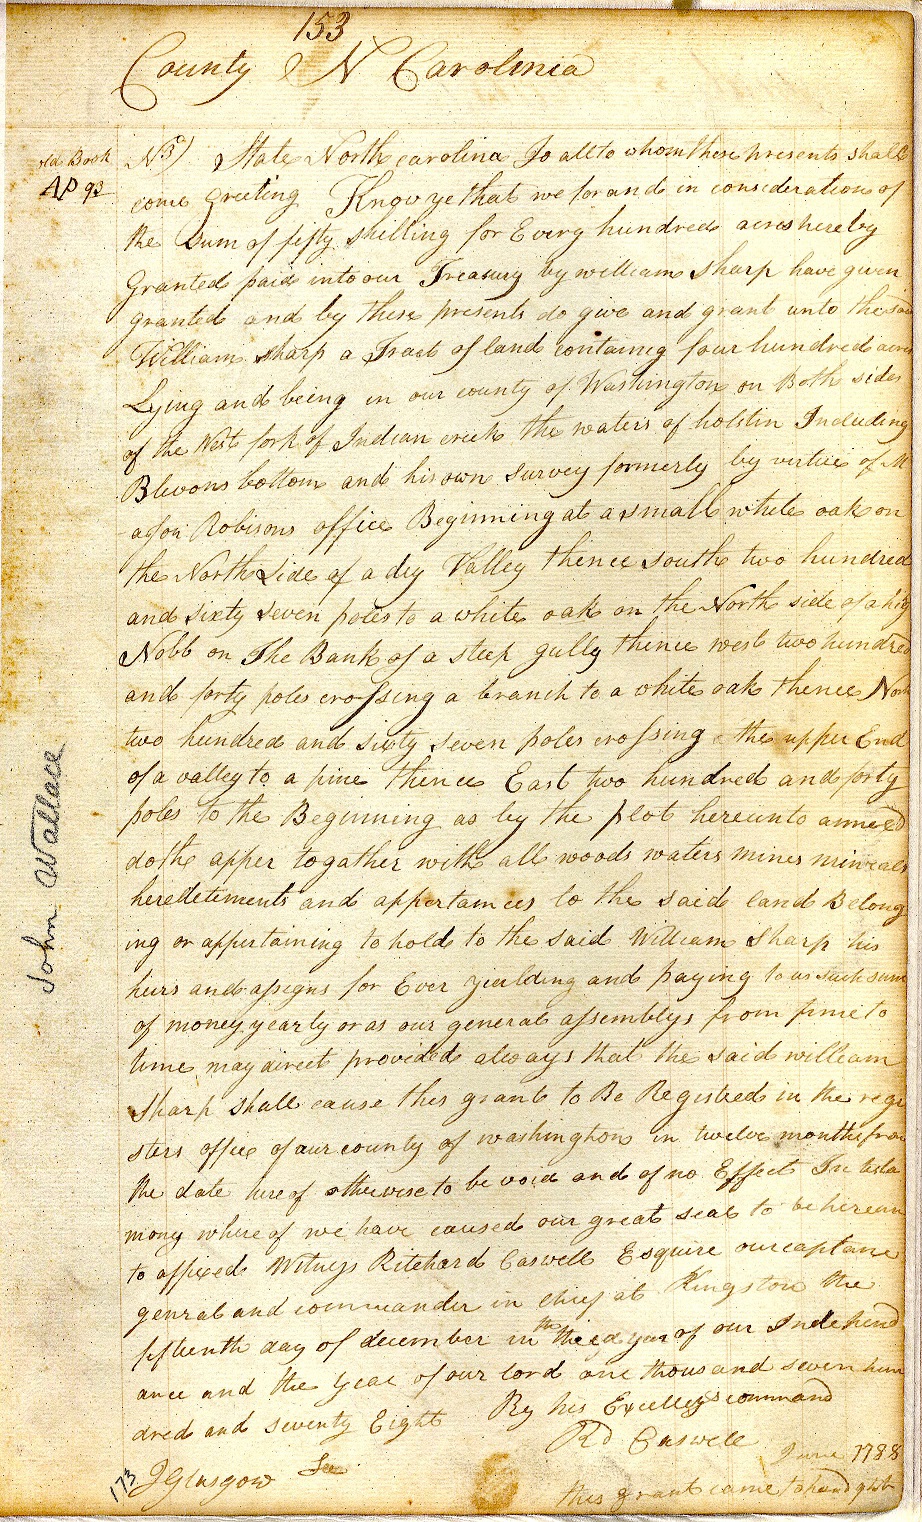 153
County N Carolinia
old Book
AP 93
No 3) State North carolina To all to whom these presents shall
come Greeting Know ye that we for and in consideration of
the Sum of fifty shilling for Every hundred acres hereby
Granted paid into our Treasury by william Sharp have given
granted and by these presents do give and grant unto the said
William Sharp a Tract of land containeg four hundred acres
Lying and being in our county of Washington on Both sides
of the West fork of Indian creek the waters of holstin Including
Blevons bottom and his own Survey formerly by virtue of
Robisons office Beginning at a small white oak on
the North Side of a dry Valley thence south two hundred
and sixty seven poles to a white oak on the North side of a
Nobb on The Bank of a steep gully thence west two hundred
and forty poles crossing a branch to a white oak thence North
two hundred and sixty seven poles crossing the upper End
of a valley to a pine thence East two hundred and forty
poles to the Beginning as by the plot hereunto annexed
doth apper togather with all woods waters mines minerals
heredetiments and appertances to the said land Belong
ing or appertaining to hold to the said William Sharp his
heirs and assigns for Ever yeilding and paying to us such sum
of money yearly or as our general assemblys from time to
time may direct provided always that the said william
Sharp shall cause this grant to Be Registred in the regi
sters office of our county of washington in twelve months from
the date here of otherwise to be void and of no Effect In testa
mony where of we have caused our great seal to be hereun
to affixed Witness Ritchard Caswell Esquire our captane
genral and commander in chief at Kingston the
fifteenth day of december in the third year of our Independ
ance and the year of our lord one thousand seven hun
dred and seventy Eight By his Excellys command
Rd Caswell
JGlasgow Sec
June 1788
this grant came to hand
173
John Wallace